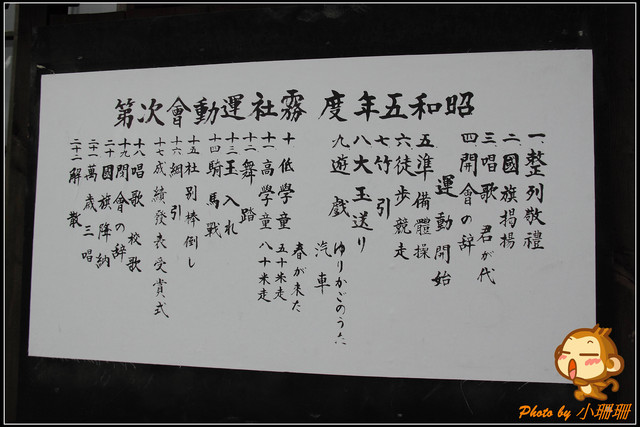 昭和五年度 霧社運動會次第
一、整列敬禮
二、國旗揭揚
三、唱歌 君が代
四 開會の辞
運動開始
五 準備體操
六 徒步競走
七 竹引
八 大玉送り
九 遊戲 ゆりかごのうた
汽車
春が来た
十 低學童 五十米走
十一 高學童 八十米走
十二 舞踏
十三 玉入れ
十四 騎馬戰
十五 社別棒倒し
十六 綱引
十七 成績發表受賞式
十八 唱歌 校歌
十九 閉會の辞
二十 國旗降納
二十一 萬歲三唱
二十二 解散
Photo by 小珊珊